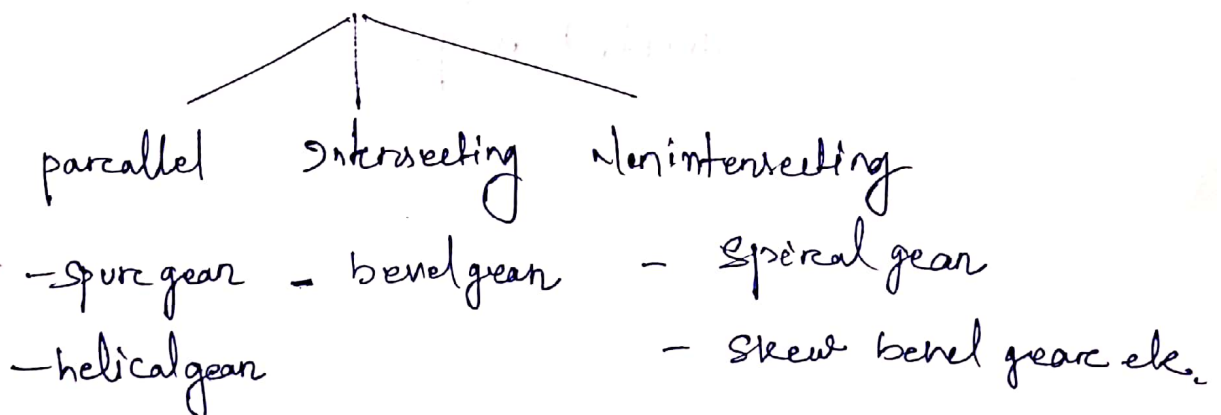 parallel Intersecting Nonintersecting
- spur gear - bevel gear - Spiral gear
- helical gear - Skew bevel gear etc.